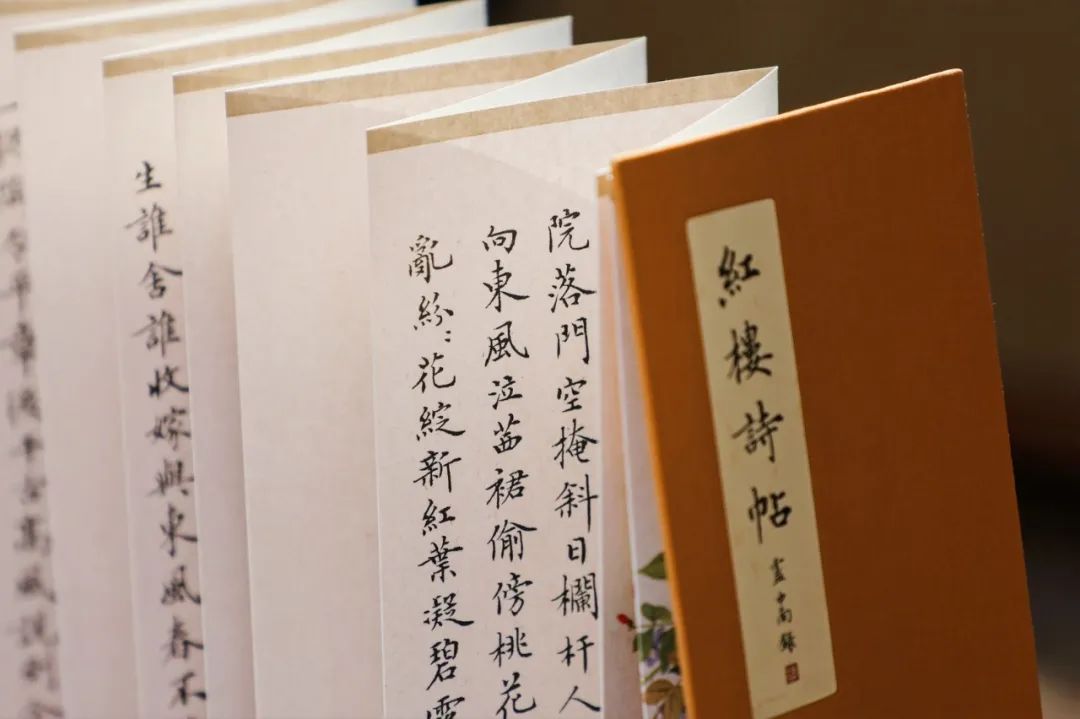 紅樓詩帖
盧中南錄
院落門空掩斜日欄杆人
向東風泣茜裙偷傍桃花
亂紛〻花綻新紅葉凝碧
生誰舍誰收嫁與東風春不
令平章後千古高風說到今